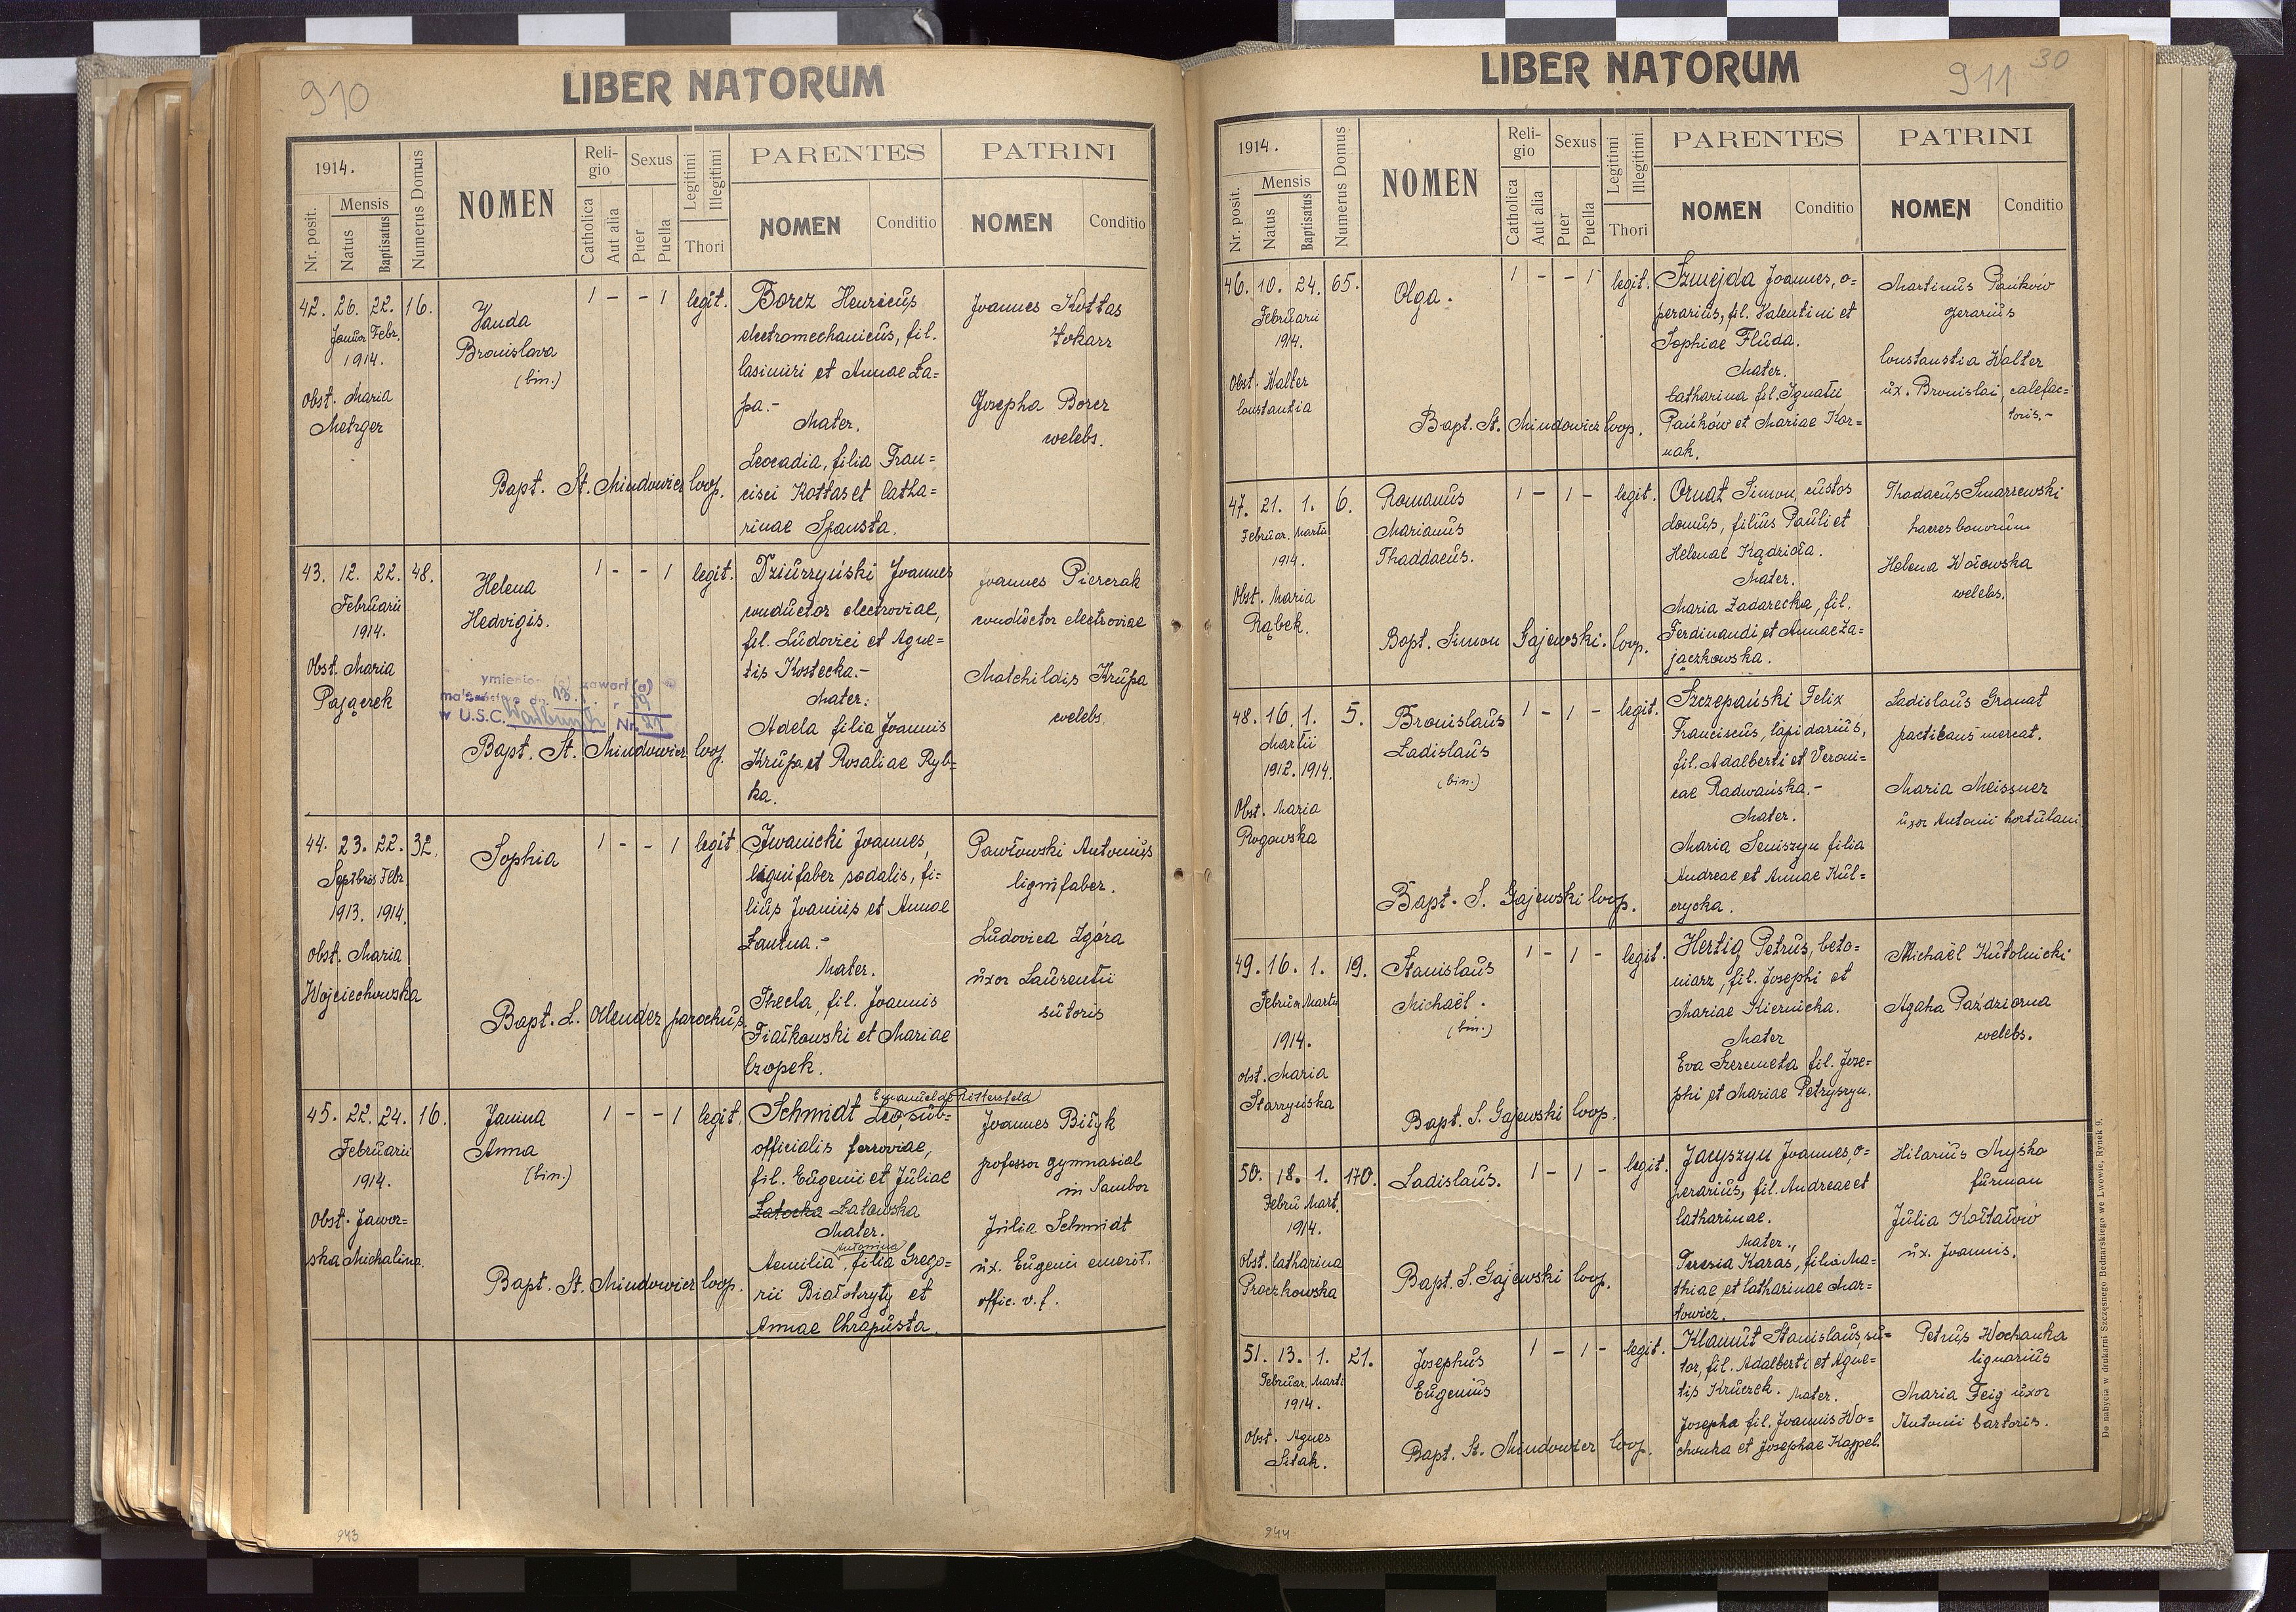 910
LIBER NATORUM
1914.
Nr. posit.
Mensis
Natus
Baptisatus
Numerus Domus
NOMEN
Religio
Catholica
Aut alia
Sexus
Puer
Puella
Legitimi
Illegitimi
Thori
PARENTES
NOMEN
Conditio
PATRINI
NOMEN
Conditio
42. 26. 22. 16.
Januar Febr.
1914.
Obst. Maria
Metzger
Vanda
Bronislava
(bin.)
1 - - 1 legit.
Bapt. St. Mindowicz Coop.
Borcz Henricus,
electromechanicus, fil.
Casimiri et Annae Ła=
pa.-
Mater.
Leocadia, filia Fran=
cisci Kottas et Catha=
rinae Spausta.
Joannes Kottas
tokarz
Josepha Borcz
welebs.
43. 12. 22. 48.
Februarii
1914.
Obst. Maria
Pajączek
Helena
Hedvigis.
1 - - 1 legit.
w U.S.C. Nr.
Bapt. St. Mindowicz Coop.
Dziurzyński Joannes
conductor electroviae,
fil. Ludovici et Agne=
tis Kostecka.-
Mater:
Adela filia Joannis
Krupa et Rosaliae Ryb=
ka.
Joannes Pierczak
conductor electroviae
Matchildis Krupa
welebs.
44. 23. 22. 32.
Septbris Febr
1913. 1914.
Obst. Maria
Wojciechowska
Sophia
1 - - 1 legit
Bapt. L. Olender parochus.
Iwanicki Joannes,
lignifaber sodalis, fi=
lius Joannis et Annae
Łautna.-
Mater.
Thecla, fil. Joannis
Fiałkowski et Mariae
Czopek.
Pawłowski Antonius
lignifaber.
Ludovica Zgóra
uxor Laurentii
sutoris
45. 22. 24. 16.
Februarii
1914.
Obst. Jawor=
ska Michalina.
Janina
Anna
(bin.)
1 - - 1 legit.
Bapt. St. Mindowicz Coop.
Emanuel de Rittersfeld
Schmidt Leo, sub=
officialis ferroviae,
fil. Eugenii et Juliae
Łatocka Łatowska
Mater.
Antonina
Aemilia, filia Grego=
rii Białokryty et
Annae Chrapusta.
Joannes Biłyk
professor gymnasial
in Sambor
Julia Schmidt
ux. Eugenii emerit.
offic. v. f.
943
LIBER NATORUM
911
30
1914.
Nr. posit.
Mensis
Natus
Baptisatus
Numerus Domus
NOMEN
Religio
Catholica
Aut alia
Sexus
Puer
Puella
Legitimi
Illegitimi
Thori
PARENTES
NOMEN
Conditio
PATRINI
NOMEN
Conditio
46. 10. 24. 65.
Februarii
1914.
Obst. Walter
Constantia
Olga.
1 - - 1 legit.
Bapt. St. Mindowicz Coop.
Szmejda Joannes, o=
perarius, fil. Valentini et
Sophiae Fluda.
Mater.
Catharina fil. Ignatii
Pańków et Mariae Kor=
nak.
Martinus Pańków
Constantia Walter
ux. Bronislai, calefac=
toris.-
47. 21. 1. 6.
Februar. Martii
1914.
Obst. Maria
Rąbek.
Romanus
Marianus
Thaddaeus.
1 - 1 - legit.
Bapt. Simon Gajewski. Coop.
Ornat Simon, custos
domus, filius Pauli et
Helenae Kądzioła.
Mater.
Maria Zadarecka, fil.
Ferdinandi et Annae Za=
jączkowska.
Thadaeus Smarzewski
haeres bonorum
Helena Wołowska
welebs.
48. 16. 1. 5.
Martii
1912. 1914.
Obst. Maria
Rogowska
Bronislaus
Ladislaus
(bin.)
1 - 1 - legit.
Bapt. S. Gajewski Coop.
Szczepański Felix
Franciscus, lapidarius,
fil. Adalberti et Veroni=
cae Radwańska.-
Mater.
Maria Seniszyn filia
Andreae et Annae Kul=
czycka.
Ladislaus Granat
practicans mercat.
Maria Meissner
uxor Antonii hortulani
49. 16. 1. 19.
Februar. Martii
1914.
Obst. Maria
Starzyńska
Stanislaus
Michaël.
(bin.)
1 - 1 - legit.
Bapt. S. Gajewski Coop.
Hertig Petrus, beto=
niarz, fil. Josephi et
Mariae Kiernicka.
Mater
Eva Szeremeta fil. Jose=
phi et Mariae Petryszyn.
Michaël Kutolnicki
Agaha Paździorna
welebs.
50. 18. 1. 170.
Febru Mart.
1914.
Obst. Catharina
Praczkowska
Ladislaus.
1 - 1 - legit.
Bapt. S. Gajewski Coop.
Jacyszyn Joannes, o=
perarius, fil. Andreae et
Catharinae.
Mater.,
Teresia Karas, filia Ma=
thiae et Catharinae Mar=
towicz.
Hilarius Myśko
furman
Julia Kołtałow
ux. Joannis.
51. 13. 1. 21.
Februar. Marti
1914.
Obst. Agnes
Sitak.
Josephus
Eugenius
1 - 1 - legit.
Bapt. St. Mindowicz Coop.
Klamut Stanislaus, su=
tor, fil. Adalberti et Agne=
tis Kruczek. Mater.
Josepha fil. Joannis Wo=
chanka et Josephae Kappel.
Petrus Wochanka
lignarius
Maria Feig uxor
Antonii sartoris.
Do nabycia w drukarni Szczęsnego Bednarskiego we Lwowie, Rynek 9.
944